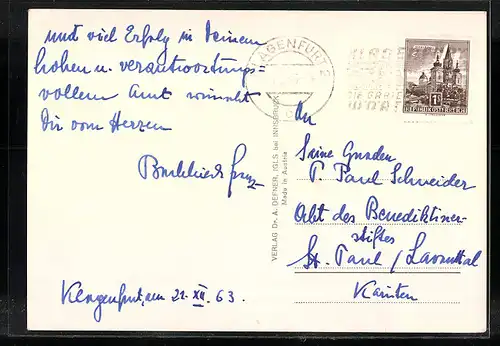 und viel Erfolg in Deinem
hohen u. verantwortungs=
vollem Amt wünscht
Dir vom Herzen
Klagenfurt, am 21. XII. 63.
KLAGENFURT 2
REPUBLIK ÖSTERREICH
VERLAG Dr. A. DEFNER, IGLS bei INNSBRUCK
Made in Austria
An
Seine Gnaden
P. Paul Schneider
Abt des Benediktiner-
stiftes
St. Paul / Lavanttal
Kärnten